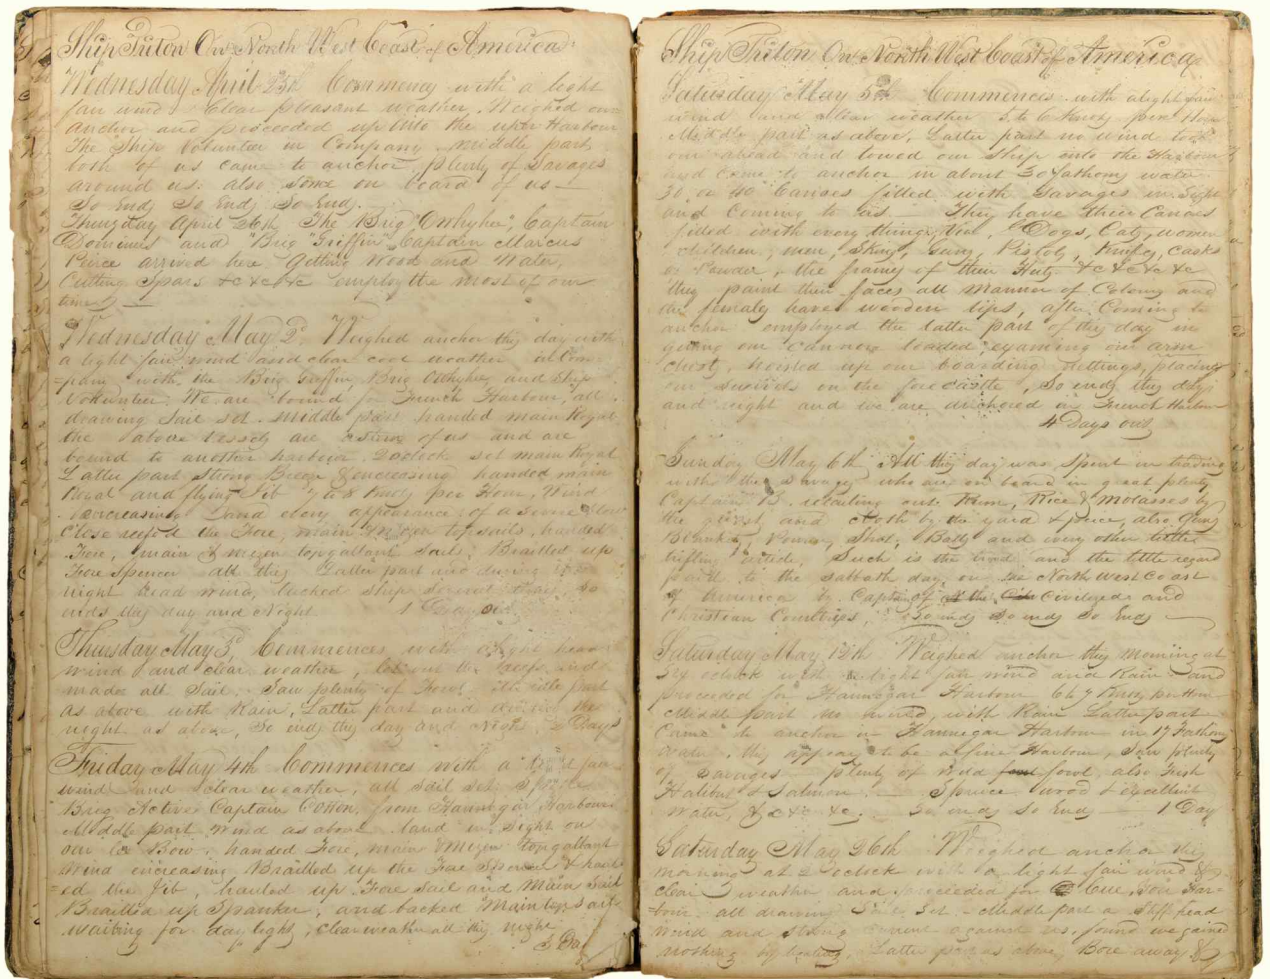 Ship Triton On North West Coast of America
Wednesday April 25th Commences with a light
fair wind & Clear pleasant weather. Weighed our
anchor and proceeded up into the upper Harbour
The Ship Volunteer in Company, Middle part
both of us came to anchor, plenty of Savages
around us: also some on board of us —
So Ends So Ends So Ends.
Thursday April 26th The Brig "Owhyhee", Captain
Dominus and Brig "Griffin" Captain Marcus
Peirce arrived here Getting Wood and Water,
Cutting Spars &c &c &c employ the most of our
time —
Wednesday May 2d Weighed anchor this day with
a light fair wind and clear cool weather in Com
=pany with the Brig Griffin, Brig Owhyhee and Ship
Volunteer. We are bound for French Harbour, all
drawing Sail set. Middle part handed main Royal
the above vessels are astern of us and are
bound to another harbour. 2 oclock set main Royal
Latter part strong Breeze & increasing handed main
Royal and flying Jib 7 to 8 knots per Hour, Wind
increasing and every appearance of a severe blow
Close reef'd the Fore, main Mizen topsails, handed
Fore, main & mizen topgallant Sails, Brailled up
Fore Spencer all this Latter part and during the
night head wind, tacked ship several times, So
ends this day and Night 1 Day out
Thursday May 3d Commences with a light head
wind and clear weather, let out the reefs and
made all Sail. Saw plenty of Fowl. Middle part
as above with Rain, Latter part and during the
night as above, So ends this day and Night 2 Days
Friday May 4th Commences with a light fair
wind and clear weather, all Sail set. Spoke
Brig Active Captain Cotton from Hannegar Harbour
Middle part wind as above land in Sight on
our lee Bow, handed Fore, main & Mizen topgallant
Wind increasing Brailled up the Fore Spencer & haul
=ed the Jib, hauled up Fore Sail and Main Sail
Brailled up Spanker, and backed Main topsail
waiting for day light, clear weather all this night
3 Da
Ship Triton On North West Coast of America
Saturday May 5th Commences with a light fair
wind and clear weather 5 to 6 knots per Hour
Middle part as above, Latter part no wind took
our ahead and towed our Ship into the Harbour
and came to anchor in about 30 fathoms water
30 or 40 Canoes filled with Savages in Sight
and Coming to us. — They have their Canoes
filled with every thing, Viz, Dogs, Cats, women
children, men, Skins, Guns, Pistols, Knifes, Casks
of Powder, the frames of their Huts &c &c &c &c
they paint their faces all manner of Colours and
the females have wooden lips, after Coming to
anchor employed the latter part of the day in
getting our cannon loaded, examing our arm
chests, hoisted up our boarding nettings, placing
our swivels on the forecastle, So ends this day
and night and we are anchored in French Harbour
4 Days out
Sunday May 6th All this day was spent in trading
with the savages who are on board in great plenty
Captain B. retailing out Rum, Rice & molasses by
the and cloth by the yard & piece, also Guns
Blankets, Powder, Shot, Balls and every other little
trifling article, Such is the trade and the little regard
paid to the sabbath day, on the North West Coast
of America by Captains of all the Civilized and
Christian Countries, So ends So ends So Ends —
Saturday May 12th Weighed anchor this morning at
six oclock with a light fair wind and Rain and
proceeded for Hannegar Harbour 6 & 7 knots per Hour
Middle part no wind, with Rain Latter part
Came to anchor in Hannegar Harbour in 17 Fathoms
water, this appears to be a fine Harbour, Saw plenty
of Savages plenty of wild fowl fowl, also Fresh
Halibut & Salmon. — Spruce wood & excellent
Water, &c &c &c. So ends So Ends — 1 Day
Saturday May 26th Weighed anchor this
morning at 2 oclock with a light fair wind &
clear weather and proceeded for Har-
bour all drawing Sail Set. Middle part a Stiff head
wind and strong against us, found we gained
nothing by beating, Latter part as above, Bore away &